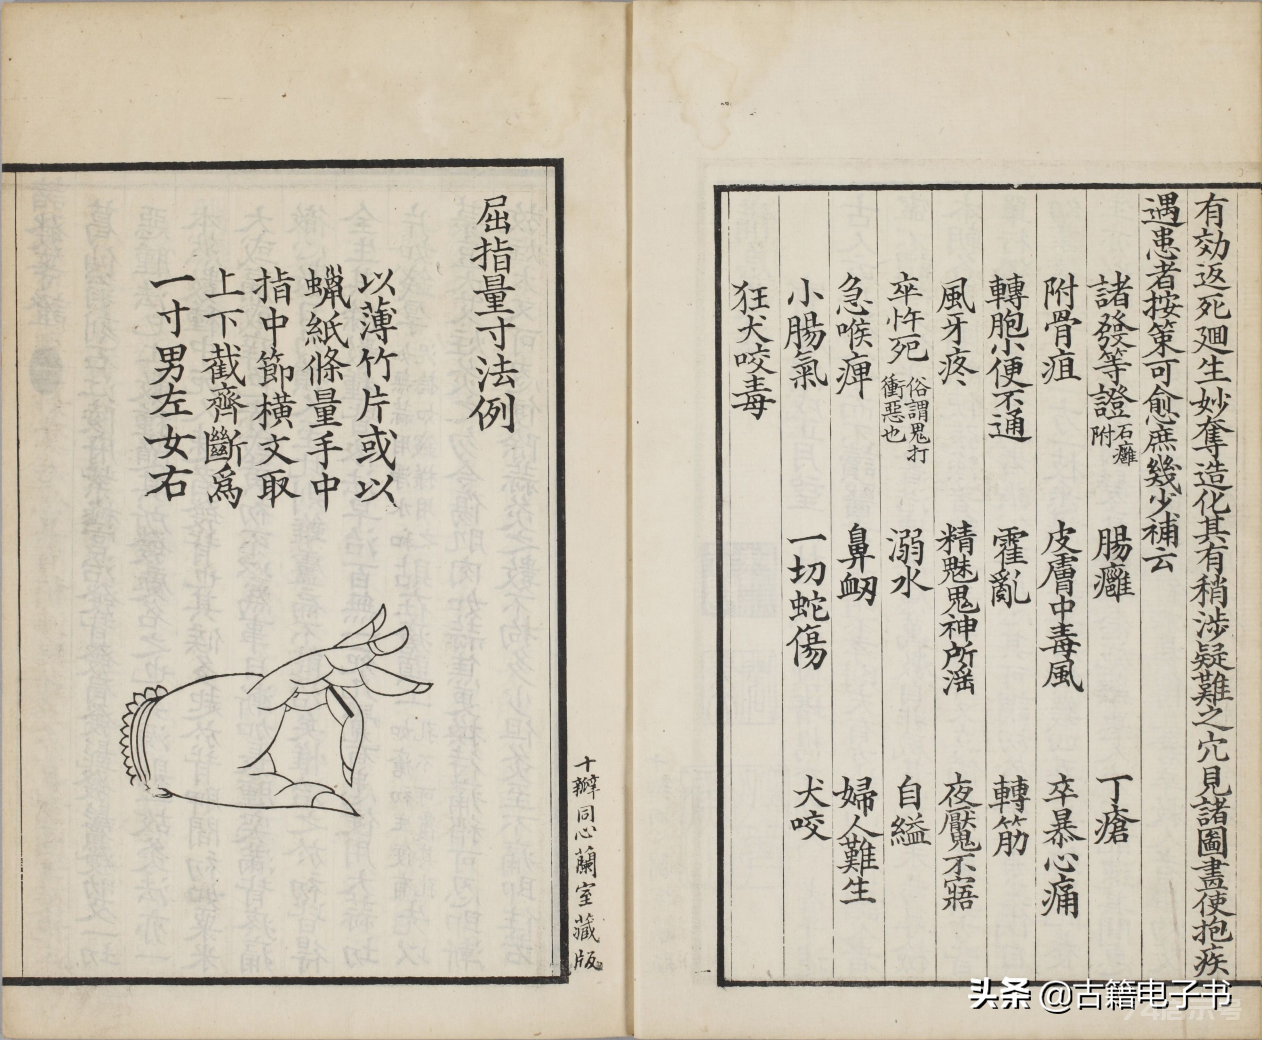 有効返死廻生妙奪造化其有稍涉疑難之穴見諸圖畫使抱疾
遇患者按策可愈庶幾少補云
諸發等證 石癰附 腸癰 丁瘡
附骨疽 皮膚中毒風 卒暴心痛
轉胞小便不通 霍亂 轉筋
風牙疼 精魅鬼神所滛 夜魘不寤
卒忤死 俗謂鬼打衝惡也 溺水 自縊
急喉痺 鼻衂 婦人難生
小腸氣 一切蛇傷 犬咬
狂犬咬毒
屈指量寸法例
以薄竹片或以
蠟紙條量手中
指中節橫文取
上下截齊斷爲
一寸男左女右
十瓣同心蘭室藏版
头条 @古籍电子书